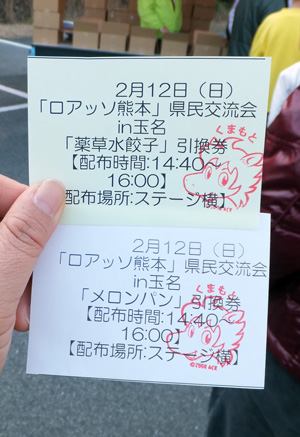 2月12日（日）
「ロアッソ熊本」県民交流会
in玉名
「薬草水餃子」引換券
【配布時間:14:40～
16:00】
配布場所:ステージ横】
くまもと
2月12日（日）
「ロアッソ熊本」県民交流会
in玉名
「メロンパン」引換券
【配布時間:14:40～
16:00】
【配布場所:ステージ横】
くまもと